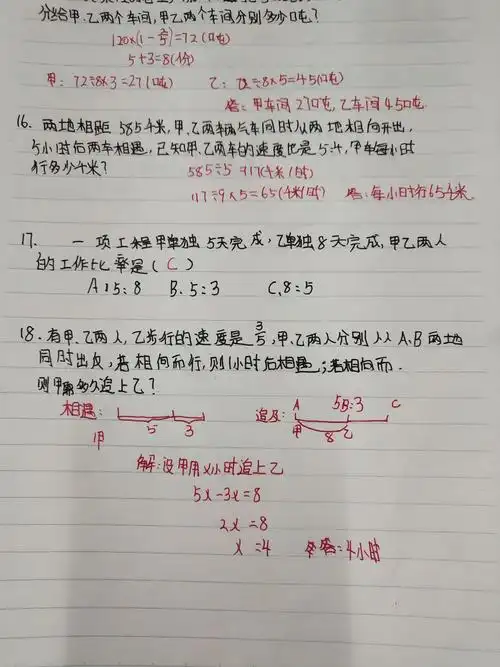 分给甲.乙两个车间,甲乙两个车间分别多少吨?
=72(吨)
5+3=8(份)
甲: 72÷8×3=27(吨) 乙: 72÷8×5=45(吨)
答: 甲车间 27吨,乙车间 45吨
16. 两地相距 585千米,甲.乙两辆汽车同时从两地相向开出,
5小时后两车相遇,已知甲.乙两车的速度比是5:4,甲车每小时
行多少千米?
585÷5=117(千米/时)
117÷9×5=65(千米/时) 答:每小时行65千米
17. 一项工程甲单独 5天完成,乙单独8天完成,甲乙两人
的工作比率是( C )
A:5:8 B. 5:3 C.8:5
18.有甲.乙两人,乙步行的速度是3/5,甲.乙两人分别从A.B两地
同时出发,若相向而行,则1小时后相遇;若相向而.
则甲多久追上乙?
相遇: 追及: A 5B:3 C
5 3 甲 8 乙
甲
解:设甲用x小时追上乙
5x-3x=8
2x=8
x=4 答:4小时